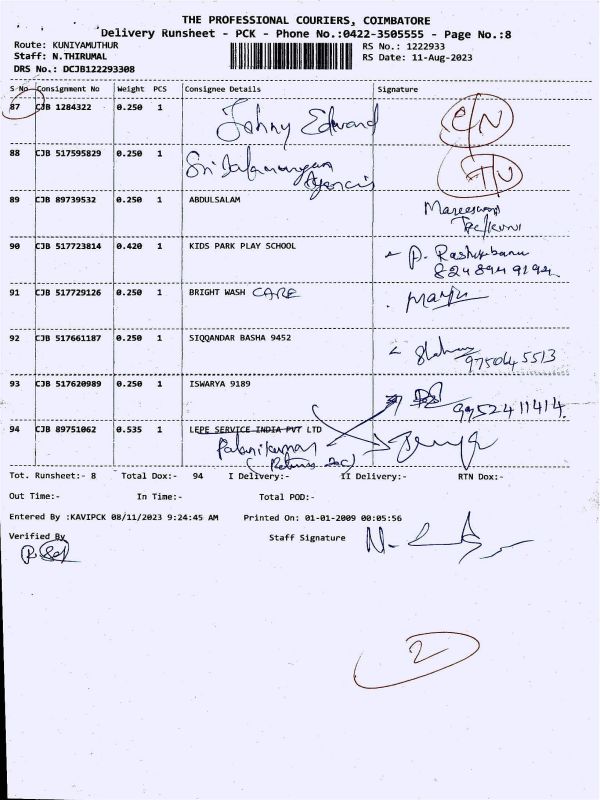 THE PROFESSIONAL COURIERS, COIMBATORE
Delivery Runsheet - PCK - Phone No.:0422-3505555 - Page No.:8
Route: KUNIYAMUTHUR
RS No.: 1222933
Staff: N.THIRUMAL
RS Date: 11-Aug-2023
DRS No.: DCJB122293308
S No Consignment No Weight PCS Consignee Details Signature
87 CJB 1284322 0.250 1 Johny Edward
88 CJB 517595829 0.250 1 Sri Agencis
89 CJB 89739532 0.250 1 ABDULSALAM
90 CJB 517723814 0.420 1 KIDS PARK PLAY SCHOOL P.
8248949194
91 CJB 517729126 0.250 1 BRIGHT WASH CARE
92 CJB 517661187 0.250 1 SIQQANDAR BASHA 9452
9750645513
93 CJB 517620989 0.250 1 ISWARYA 9189
9952411414.
94 CJB 89751062 0.535 1 LEPE SERVICE INDIA PVT LTD
Palanikumar
Tot. Runsheet:- 8 Total Dox:- 94 I Delivery:- II Delivery:- RTN Dox:-
Out Time:- In Time:- Total POD:-
Entered By :KAVIPCK 08/11/2023 9:24:45 AM Printed On: 01-01-2009 00:05:56
Verified By Staff Signature
2